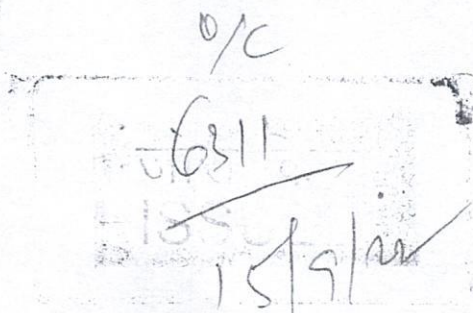 O/C
6311
15/9/22